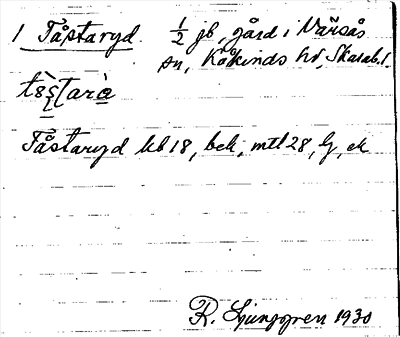 1 Tåstaryd. ½ jb, gård i Varsås
sn, Kåkinds hd, Skarab. l.
Tåstaryd kb 18, bek, mtl 28, lj, ek
R. Ljunggren 1930